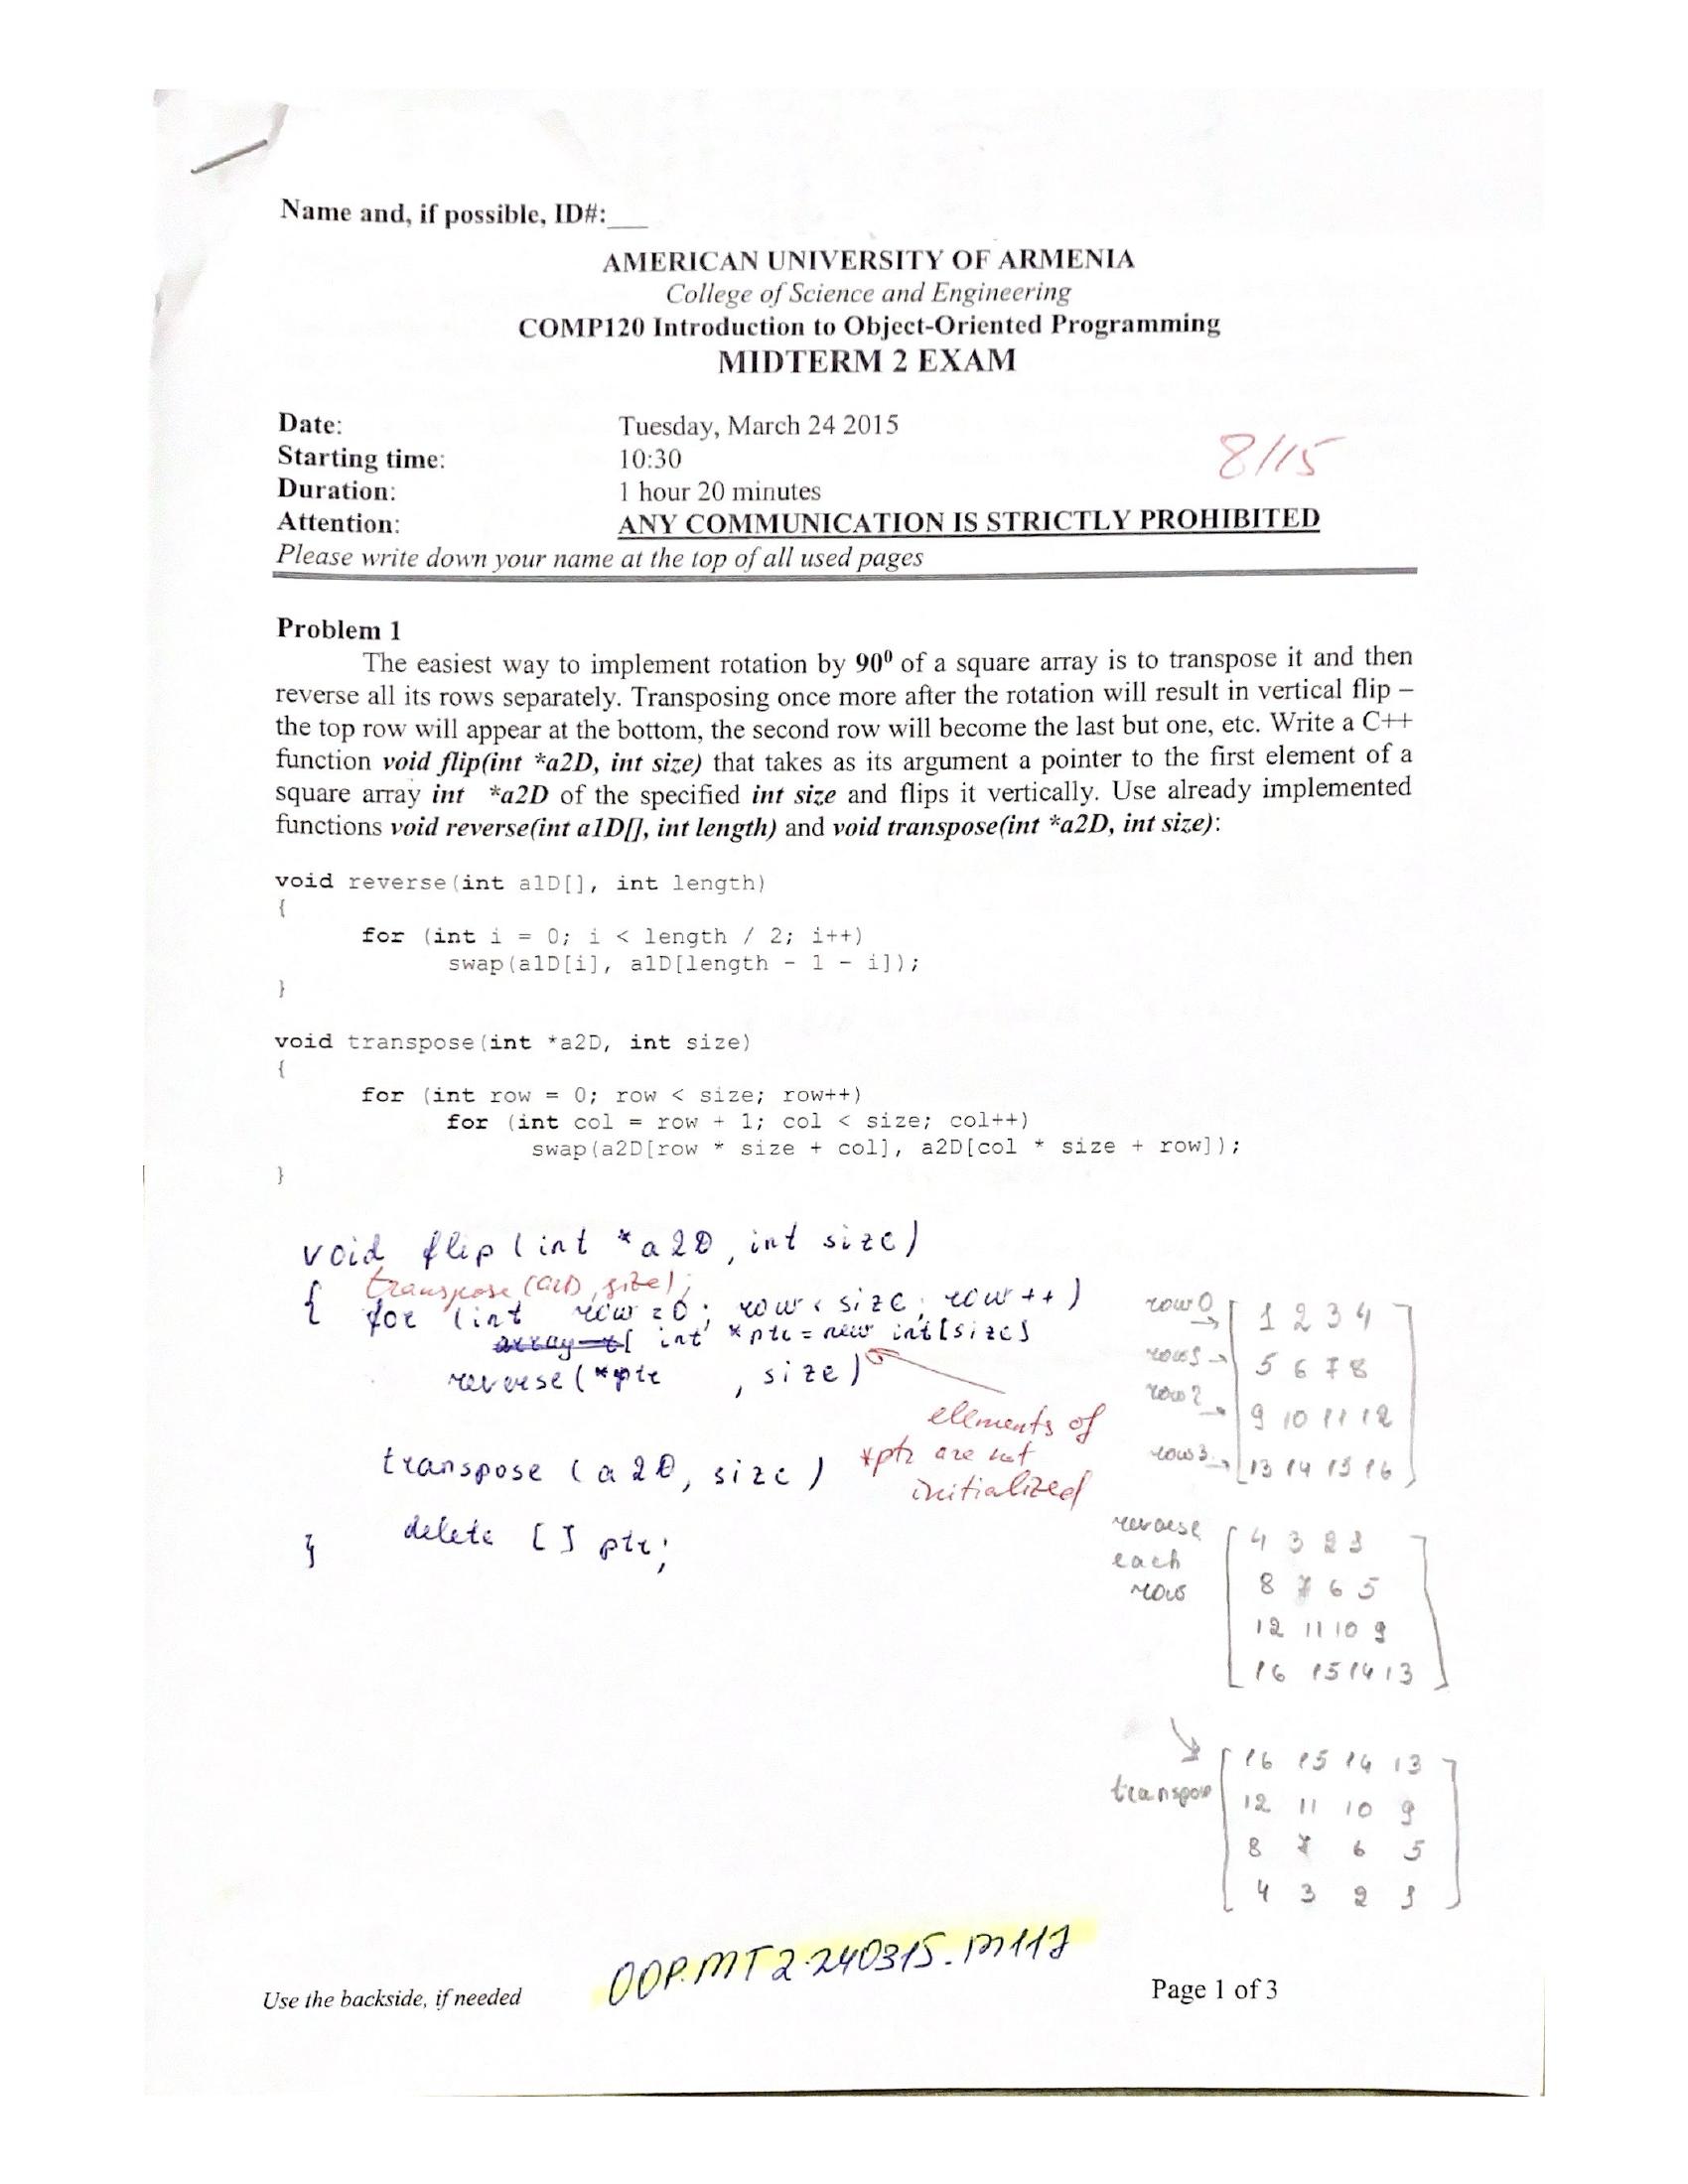 Name and, if possible, ID#:___
AMERICAN UNIVERSITY OF ARMENIA
College of Science and Engineering
COMP120 Introduction to Object-Oriented Programming
MIDTERM 2 EXAM
Date: Tuesday, March 24 2015
8/15
Starting time: 10:30
Duration: 1 hour 20 minutes
Attention: ANY COMMUNICATION IS STRICTLY PROHIBITED
Please write down your name at the top of all used pages
Problem 1
The easiest way to implement rotation by 90⁰ of a square array is to transpose it and then
reverse all its rows separately. Transposing once more after the rotation will result in vertical flip –
the top row will appear at the bottom, the second row will become the last but one, etc. Write a C++
function void flip(int *a2D, int size) that takes as its argument a pointer to the first element of a
square array int *a2D of the specified int size and flips it vertically. Use already implemented
functions void reverse(int a1D[], int length) and void transpose(int *a2D, int size):
void reverse(int a1D[], int length)
{
for (int i = 0; i < length / 2; i++)
swap(a1D[i], a1D[length - 1 - i]);
}
void transpose(int *a2D, int size)
{
for (int row = 0; row < size; row++)
for (int col = row + 1; col < size; col++)
swap(a2D[row * size + col], a2D[col * size + row]);
}
void flip (int *a2D, int size)
transpose (a2D, size);
{ for (int row = 0; row < size; row++)
int *ptr = new int[size]
reverse (*ptr , size)
elements of
*ptr are not
initialized
transpose (a2D, size)
delete [] ptr;
}
row 0 → 1 2 3 4
row 1 → 5 6 7 8
row 2 → 9 10 11 12
row 3 → 13 14 15 16
reverse
each
row
4 3 2 1
8 7 6 5
12 11 10 9
16 15 14 13
transpose
16 15 14 13
12 11 10 9
8 7 6 5
4 3 2 1
OOP.MT2.240315.M117
Use the backside, if needed
Page 1 of 3